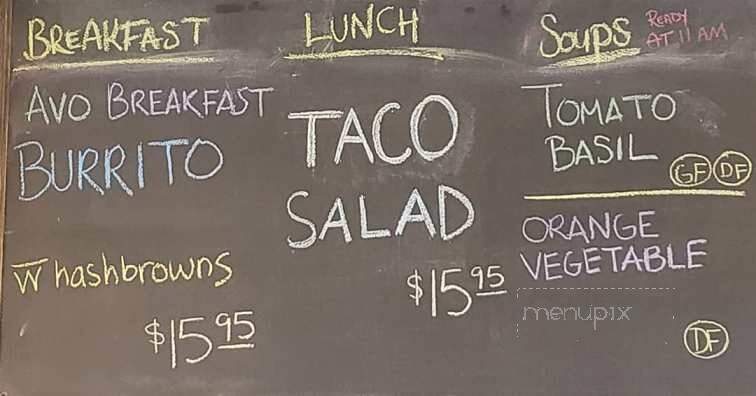 BREAKFAST
AVO BREAKFAST
BURRITO
w hashbrowns
$15.95
LUNCH
TACO
SALAD
$15.95
SOUPS READY
AT 11 AM
TOMATO
BASIL
GF DF
ORANGE
VEGETABLE
menupix
DF